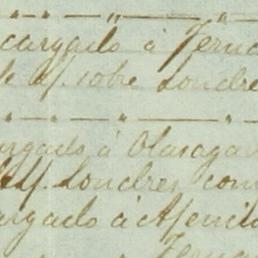 cargado á Fern
de Lf. sobre Londre
argado á Olasaga
Lf. Londres com
argado á Asencio
Fern